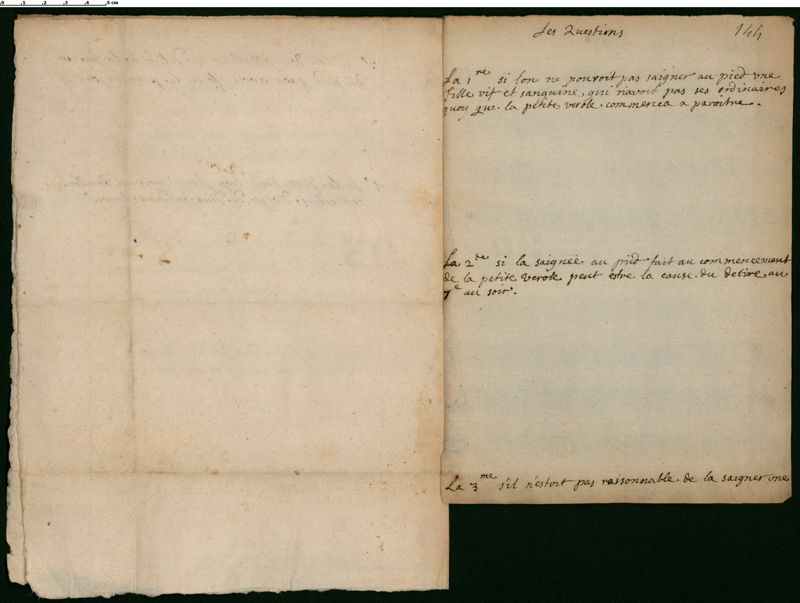 Les Questions
144
La 1re si lon ne pouroit pas saigner au pied vne
fille vif et sanguine, qui n'avoit pas ses ordinaires
quoy que la petite verole commenca a paroitre.
La 2de si la saignée au pied fait au commencement
de la petite verole peut estre la cause du delire au
7e au soir.
La 3me s'il n'estoit pas raisonnable de la saigner vne